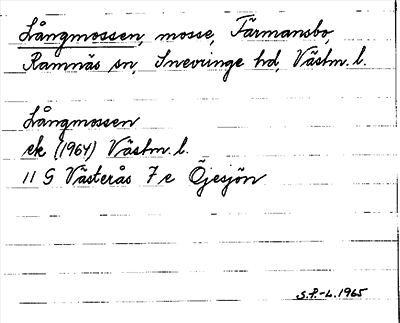 Långmossen, mosse, Färmansbo,
Ramnäs sn, Snevringe hd, Västm. l.
Långmossen
ek (1964) Västm. l.
11 G Västerås 7 e Öjesjön
S.P.-L. 1965